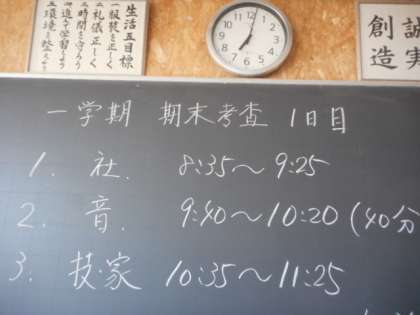 生活五目標
一服装を正しく
二礼儀正しく
三時間を守ろう
四進んで学習しよう
五環境を整えよう
誠実
創造
一学期 期末考査 1日目
1. 社. 8:35～9:25
2. 音. 9:40～10:20(40分
3. 技・家 10:35～11:25